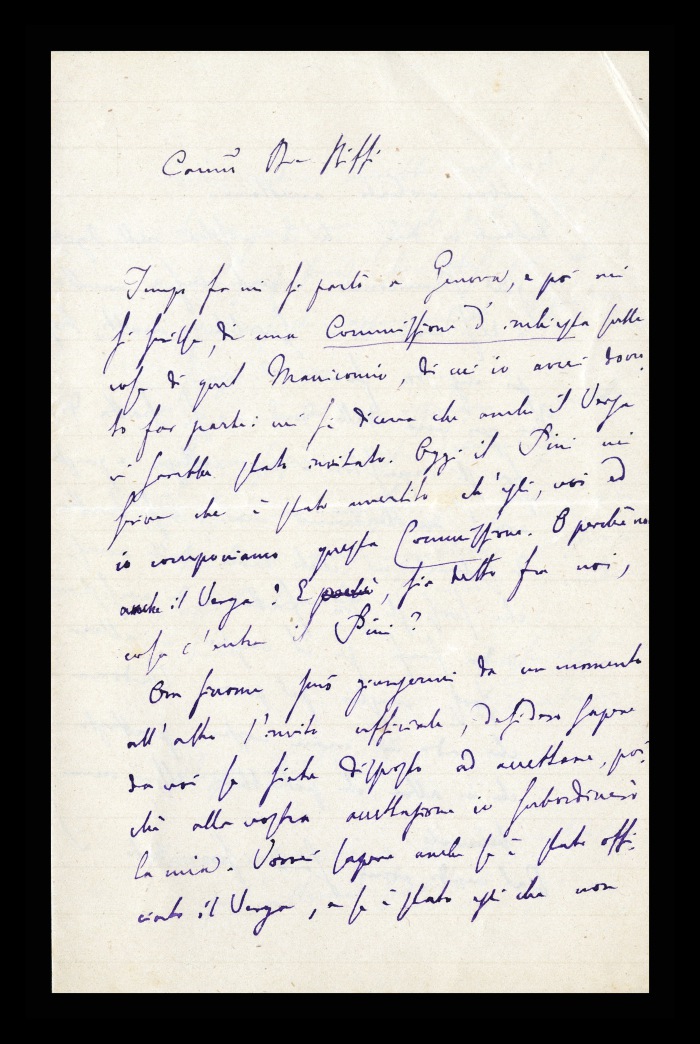 Biffi
Tempo fa mi si parlò a Genova, e poi mi
si scrisse, di una Commissione d'inchiesta sulle
cose di quel Manicomio, di cui io avrei dovu
to far parte: mi si diceva che anche il Verga
vi sarebbe stato invitato. Oggi il Pini mi
scrive che è stato avvertito ch'egli, voi ed
io componiamo questa Commissione. O perchè no
anche il Verga? E perchè, sia detto fra noi,
cosa c'entra il Pini?
Ora siccome può giungermi da un momento
all'altro l'invito ufficiale, desidero sapere
da voi se siate disposto ad accettare, poi
chè alla vostra accettazione io subordinerò
la mia. Vorrei sapere anche se è stato offi
ciato il Verga, e se è stato egli che non